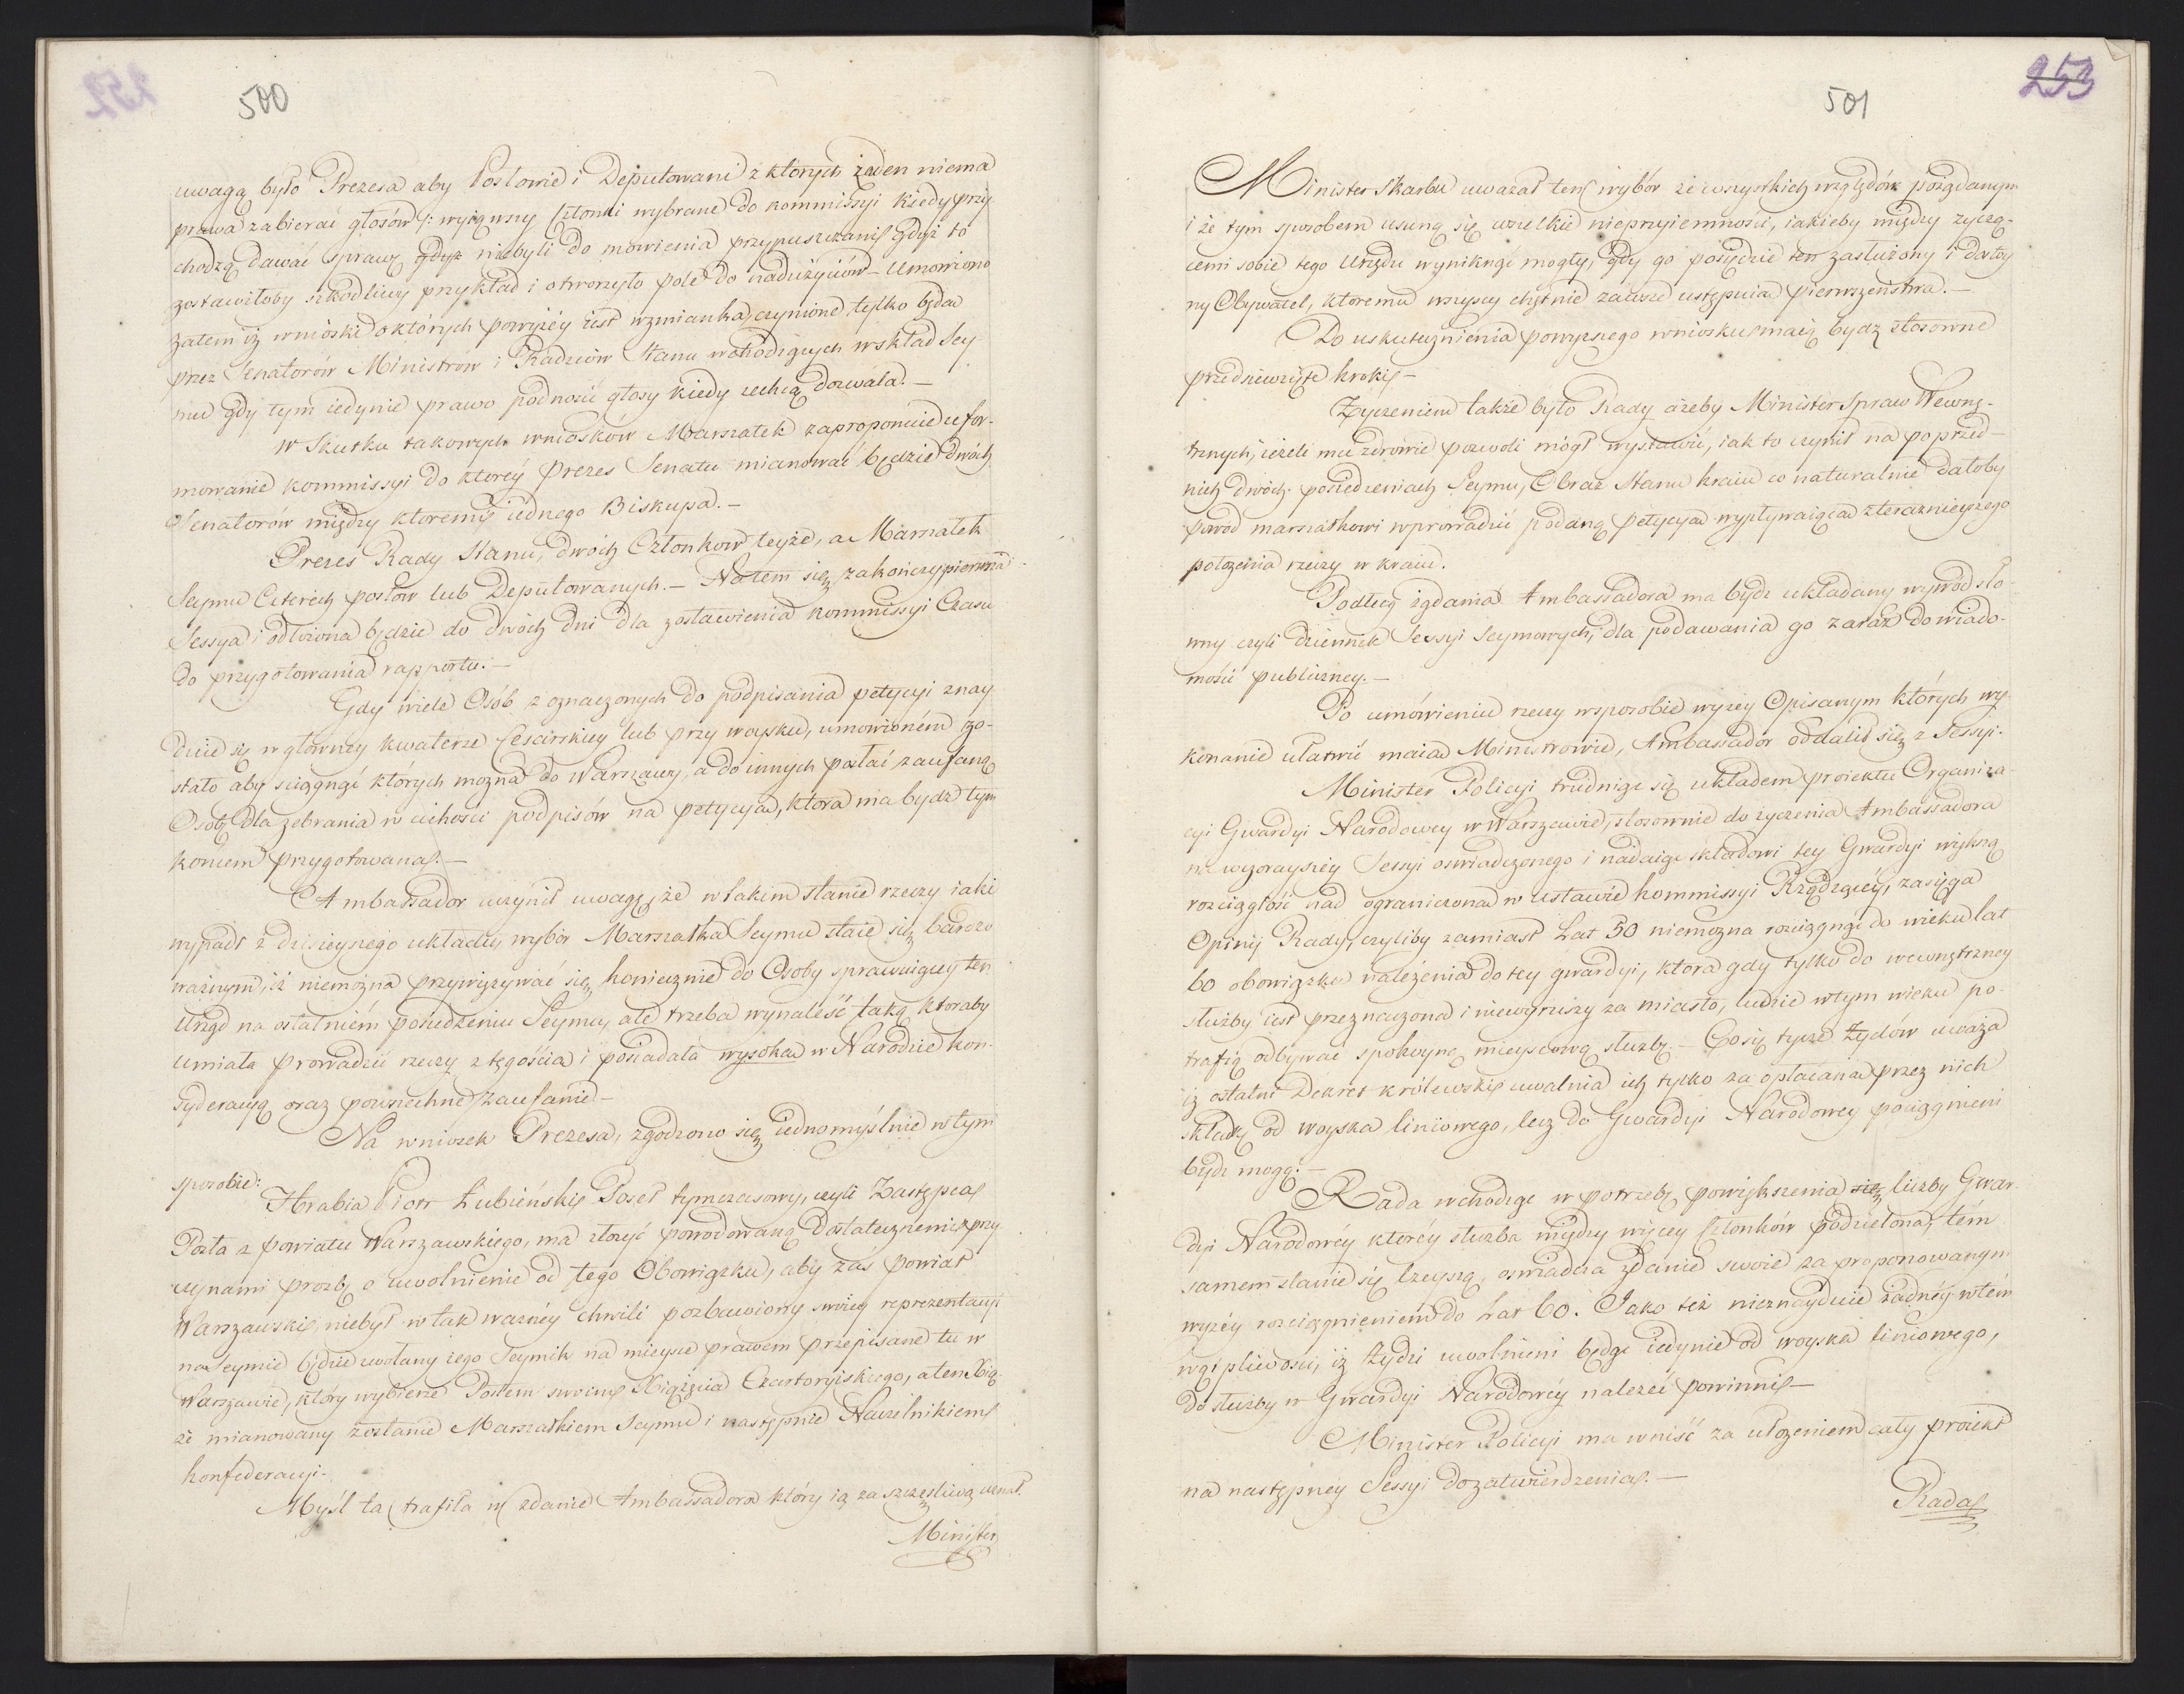 500
uwagą było Prezesa aby Posłowie i Deputowani z których żaden niema
prawa zabierać głosów /: wyiąwszy Członki wybrane do kommissyi kiedy przy-
chodzą dawać sprawę gdyż niebyli do mówienia przypuszczani gdyż to
zostawiłoby szkodliwy przykład i otworzyło pole do nadużyciów – Umowiono
zatem iż wnioski o których powyżéy iest wzmianka, czynione tylko będą
przez Senatorów Ministrów i Radzców Stanu wchodzących w skład Sey-
mu gdy tym iedynie prawo podnosić głosy kiedy zechcą dozwala. –
W Skutku takowych wniosków Marszałek zaproponuie ufor-
mowanie kommissyi do któréy Prezes Senatu mianować będzie dwóch
Senatorów między któremi iednego Biskupa. –
Prezes Rady Stanu, dwóch Członków teyże, a Marszałek
Seymu Czterech posłów lub Deputowanych. – Natem się zakończy pierwsza
Sessya i odłożona będzie do dwóch dni dla zostawienia kommissyi Czasu
do przygotowania rapportu. –
Gdy wiele Osób z oznaczonych do podpisania petycyi znay-
duie się w główney kwaterze Cesarskiey lub przy woysku, umowioném zo-
stało aby sciągnąć których można do Warszawy, a do innych posłać zaufaną
Osobę dla zebrania w cichości podpisów na petycyą, która ma bydź tym
końcem przygotowana. –
Ambassador uczynił uwagę, że w takim stanie rzeczy iaki
wypadł z dzisieyszego układu, wybór Marszałka Seymu staie się bardzo
ważnym, iż niemożna przywięzywać się koniecznie do Osoby sprawuiącey ten
Urząd na ostatniém posiedzeniu Seymu, ale trzeba wynaleść taką któraby
umiała prowadzić rzeczy z tęgością i posiadała wysoką w Narodzie kon-
syderacyą oraz powszechne zaufanie –
Na wniosek Prezesa, zgodzono się iednomyślnie w tym
sposobie:
Hrabia Piotr Łubieński Poseł tymczasowy, czyli Zastępca
Posła z powiatu Warszawskiego, ma złożyć powodowaną dostatecznemi przy-
czynami prozbę o uwolnienie od tego Obowiązku, aby zaś powiat
Warszawski niebył w tak ważnéy chwili pozbawiony swoiey reprezentacyi
na Seymie będzie zwołany iego Seymik na mieysce prawem przepisane tu w
Warszawie, który wybierze Posłem swoim Xiążęcia Czartoryiskiego, a ten Xią-
że mianowany zostanie Marszałkiem Seymu i następnie Naczelnikiem
konfederacyi –
Myśl ta trafiła w zdanie Ambassadora który ią za szczęśliwą uznał.
Minister
253
501
Minister Skarbu uważał ten wybór ze wszystkich względów pożądanym
i że tym sposobem usuną się wszelkie nieprzyiemności, iakieby między życzą-
cemi sobie tego Urzędu wyniknąć mogły, gdy go posiędzie ten zasłużony i
ny Obywatel, któremu wszyscy chętnie zawsze ustępuią pierwszeństwa. –
Do uskutecznienia powyższego wniosku maią bydz stosowne
przedsiewzięte kroki –
Życzeniem także było Rady ażeby Minister Spraw Wewnę-
trznych, ieżeli mu zdrowie pozwoli mógł wystawić, iak to czynił na poprzed-
nich dwóch posiedzeniach Seymu, Obraz Stanu kraiu co naturalnie dałoby
powod marszałkowi wprowadzić podaną petycyą wypływaiącą z teraznieyszego
położenia rzeczy w kraiu.
Podług żądania Ambassadora ma bydź układany wywód sło-
wny czyli dziennik Sessyi Seymowych, dla podawania go zaraz do wiado-
mości publiczney. –
Po umówieniu rzeczy wsposobie wyżey Opisanym których wy-
konanie ułatwić maią Ministrowie, Ambassador oddalił się z Sessyi.
Minister Policyi trudniąc się układem proiektu Organiza-
cyi Gwardyi Narodowey w Warszawie, stosownie do życzenia Ambassadora
na wczorayszéy Sessyi oswiadczonego i nadaiąc składowi tey Gwardyi większą
rozciągłość nad ograniczoną w Ustawie kommissyi Rządzącéy, zasięga
Opinij Rady, czyliby zamiast Lat 50 niemożna rozciągnąć do wieku lat
60 obowiązku należenia do tey gwardyi, która gdy tylko do wewnętrzney
służby iest przeznaczona i niewyruszy za miasto, ludzie w tym wieku po-
trafią odbywać spokoyną mieyscową służbę. – Co się tycze Żydów uważa
iż ostatni Dekret królewski uwalnia ich tylko za opłacaną przez nich
składkę od woyska liniowego, lecz do Gwardyi Narodowey pociągnieni
bydz mogą. –
Rada wchodząc w potrzebę powiększenia się liczby Gwar-
dyi Narodowéy któréy służba między więcey Członków podzielona, tém
samem stanie się lżeyszą, oswiadcza zdanie swoie za proponowanym
wyżéy rozciągnieniem do Lat 60. Jako też nieznayduie żadnéy w tém
wątpliwości, iż Żydzi uwolnieni będąc iedynie od woyska liniowego,
do służby w Gwardyi Narodowéy należeć powinni –
Minister Policyi ma wnieść za ułożeniem cały proiekt
na następnéy Sessyi do zatwierdzenia. –
Rada